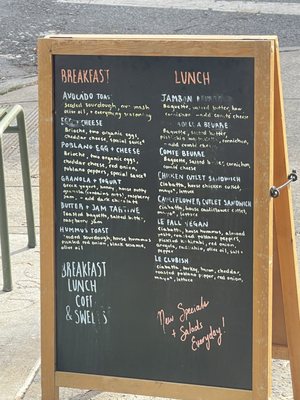 BREAKFAST
AVOCADO TOAST
seeded sourdough, mash
olive oil, + everything seasoning
CHEESE
Brioche, two organic eggs,
cheddar cheese
POBLANO EGG + CHEESE
Brioche, two organic eggs,
cheddar cheese, red onion,
poblano peppers, special sauce*
GRANOLA + YOGURT
Greek yogurt, honey, house made
granola (contains nuts), raspberry
jam,
BUTTER + JAM TARTINE
Toasted baguette, salted butter,
HUMMUS TOAST
seeded sourdough, house hummus
pickled red onion, black sesame,
olive oil
BREAKFAST
LUNCH
COFF
& SWEETS
LUNCH
JAMBON
Baguette, salted butter, ham
cornichon - add comté cheese
BEURRE
Baguette, salted butter
cornichon,
add comté
COMTÉ BEURRE
Baguette, salted butter, cornichon,
comté cheese
CHICKEN CUTLET SANDWICH
Ciabatta, house chicken cutlet,
mayo*, lettuce
CAULIFLOWER CUTLET SANDWICH
Ciabatta, house cauliflower cutlet,
mayo*, lettuce
LE FALL VEGAN
Ciabatta, house hummus, almond
pesto, roasted poblano peppers,
pickled red onion,
arugula, olive oil, salt
LE CLUBISH
Ciabatta, turkey, bacon, cheddar,
roasted poblano pepper, red onion,
mayo*, lettuce
New Specials
+ Salads
Everyday!